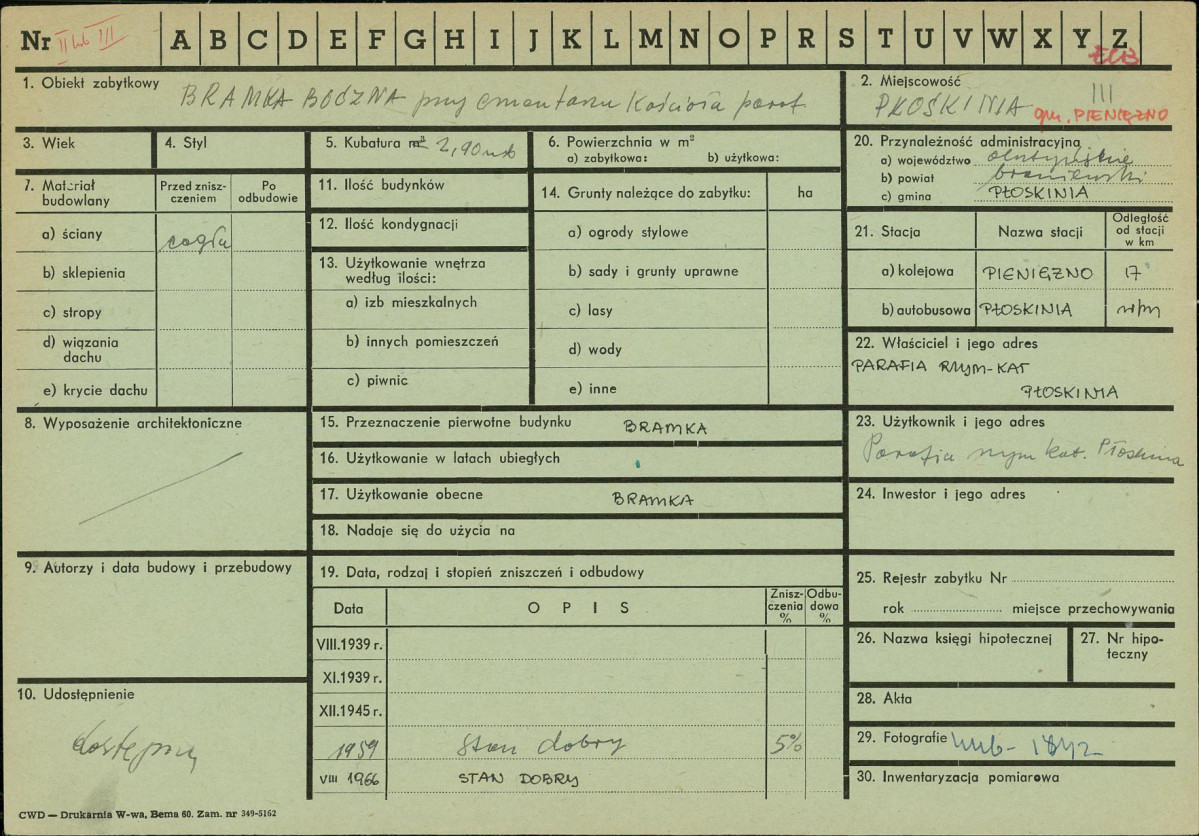 Nr II lub III A B C D E F G H I J K L M N O P R S T U V W X Y Z
1. Obiekt zabytkowy BRAMKA BOCZNA przy cmentarzu Kościoła paraf
2. Miejscowość III
PŁOSKINIA gm. PIENIĘŻNO
3. Wiek
4. Styl
5. Kubatura m³ 2,90 mb
6. Powierzchnia w m²
a) zabytkowa: b) użytkowa:
20. Przynależność administracyjna
a) województwo olsztyńskie
b) powiat braniewski
c) gmina PŁOSKINIA
7. Materiał budowlany
Przed zniszczeniem
Po odbudowie
a) ściany cegła
b) sklepienia
c) stropy
d) wiązania dachu
e) krycie dachu
11. Ilość budynków
12. Ilość kondygnacji
13. Użytkowanie wnętrza
według ilości:
a) izb mieszkalnych
b) innych pomieszczeń
c) piwnic
14. Grunty należące do zabytku: ha
a) ogrody stylowe
b) sady i grunty uprawne
c) lasy
d) wody
e) inne
21. Stacja Nazwa stacji Odległość od stacji w km
a) kolejowa PIENIĘŻNO 17
b) autobusowa PŁOSKINIA w/m
22. Właściciel i jego adres
PARAFIA RZYM-KAT
PŁOSKINIA
8. Wyposażenie architektoniczne
15. Przeznaczenie pierwotne budynku BRAMKA
16. Użytkowanie w latach ubiegłych
17. Użytkowanie obecne BRAMKA
18. Nadaje się do użycia na
23. Użytkownik i jego adres
Parafia rzym kat. Płoskinia
24. Inwestor i jego adres
9. Autorzy i data budowy i przebudowy
19. Data, rodzaj i stopień zniszczeń i odbudowy
Data OPIS Zniszczenia % Odbudowa %
VIII.1939 r.
XI.1939 r.
XII.1945 r.
1959 stan dobry 5%
VIII 1966 STAN DOBRY
25. Rejestr zabytku Nr
rok miejsce przechowywania
26. Nazwa księgi hipotecznej
27. Nr hipoteczny
28. Akta
29. Fotografie
30. Inwentaryzacja pomiarowa
10. Udostępnienie
dostępny
CWD — Drukarnia W-wa, Bema 60. Zam. nr 349-5162